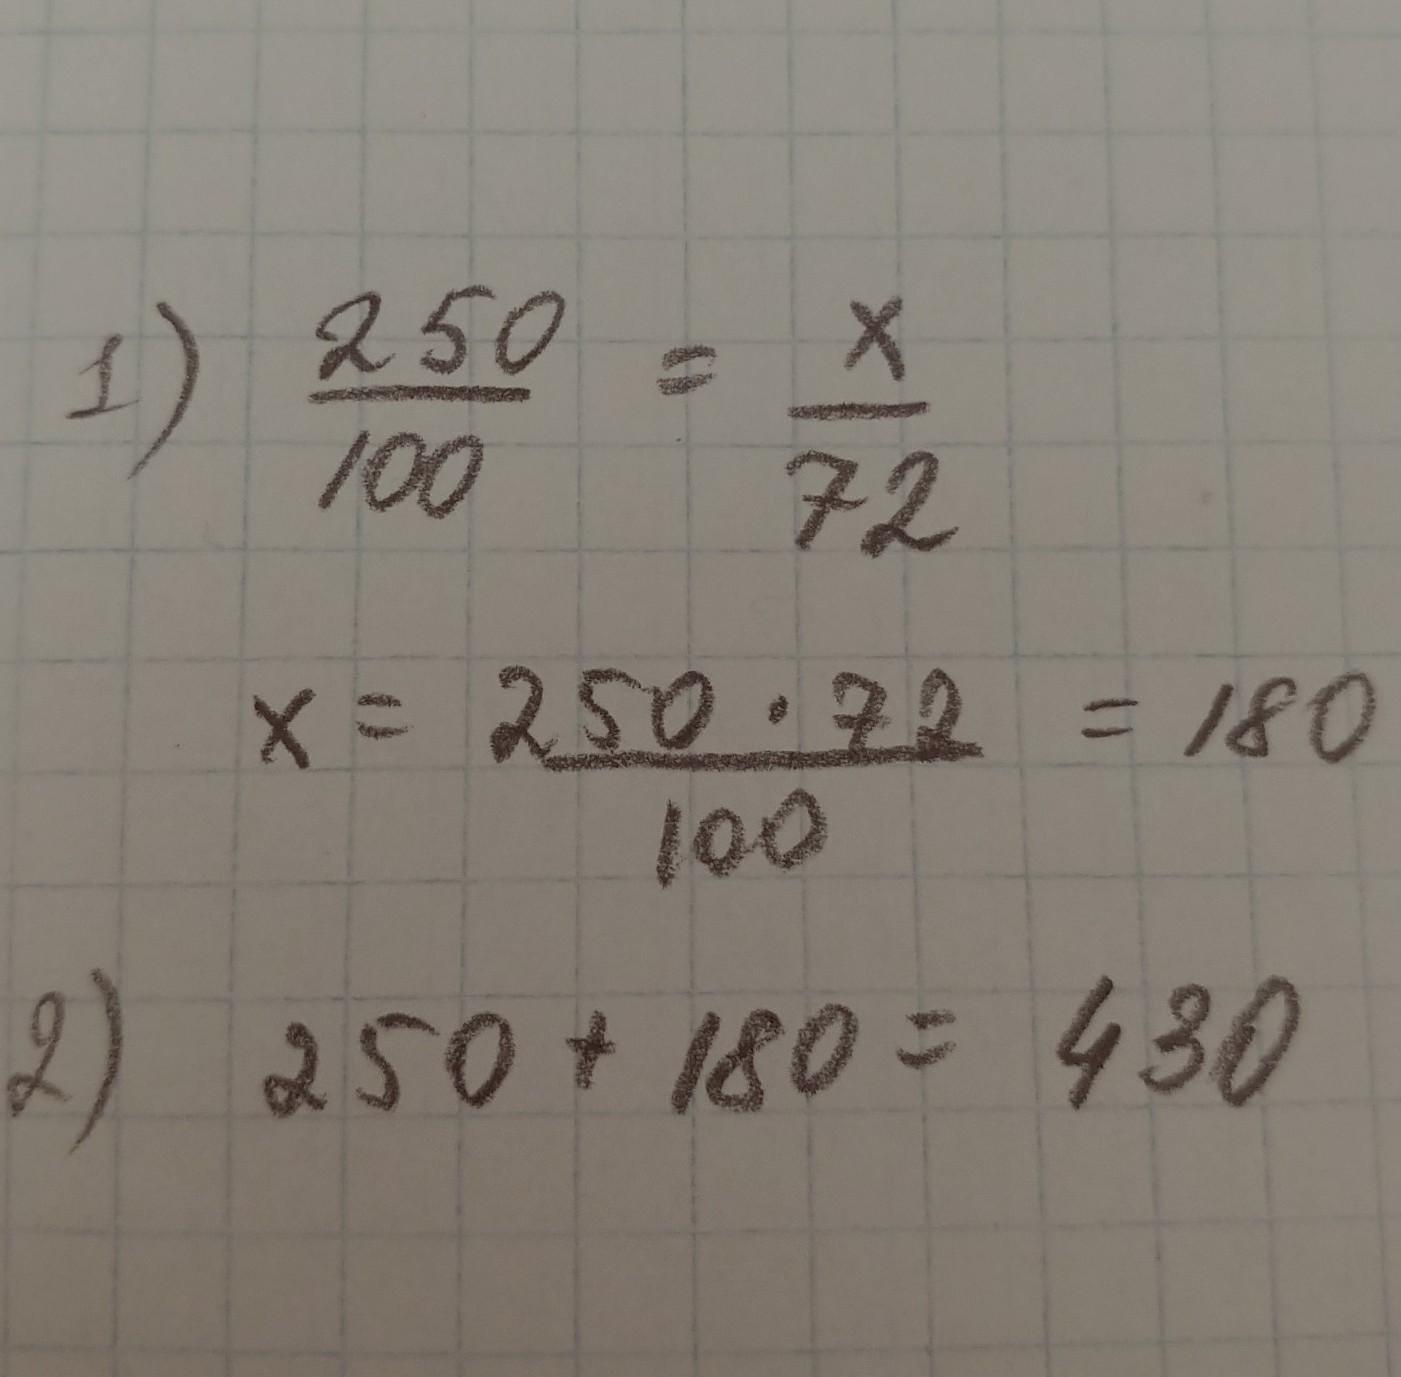 1) 250/100 = x/72
x = 250 · 72/100 = 180
2) 250 + 180 = 430